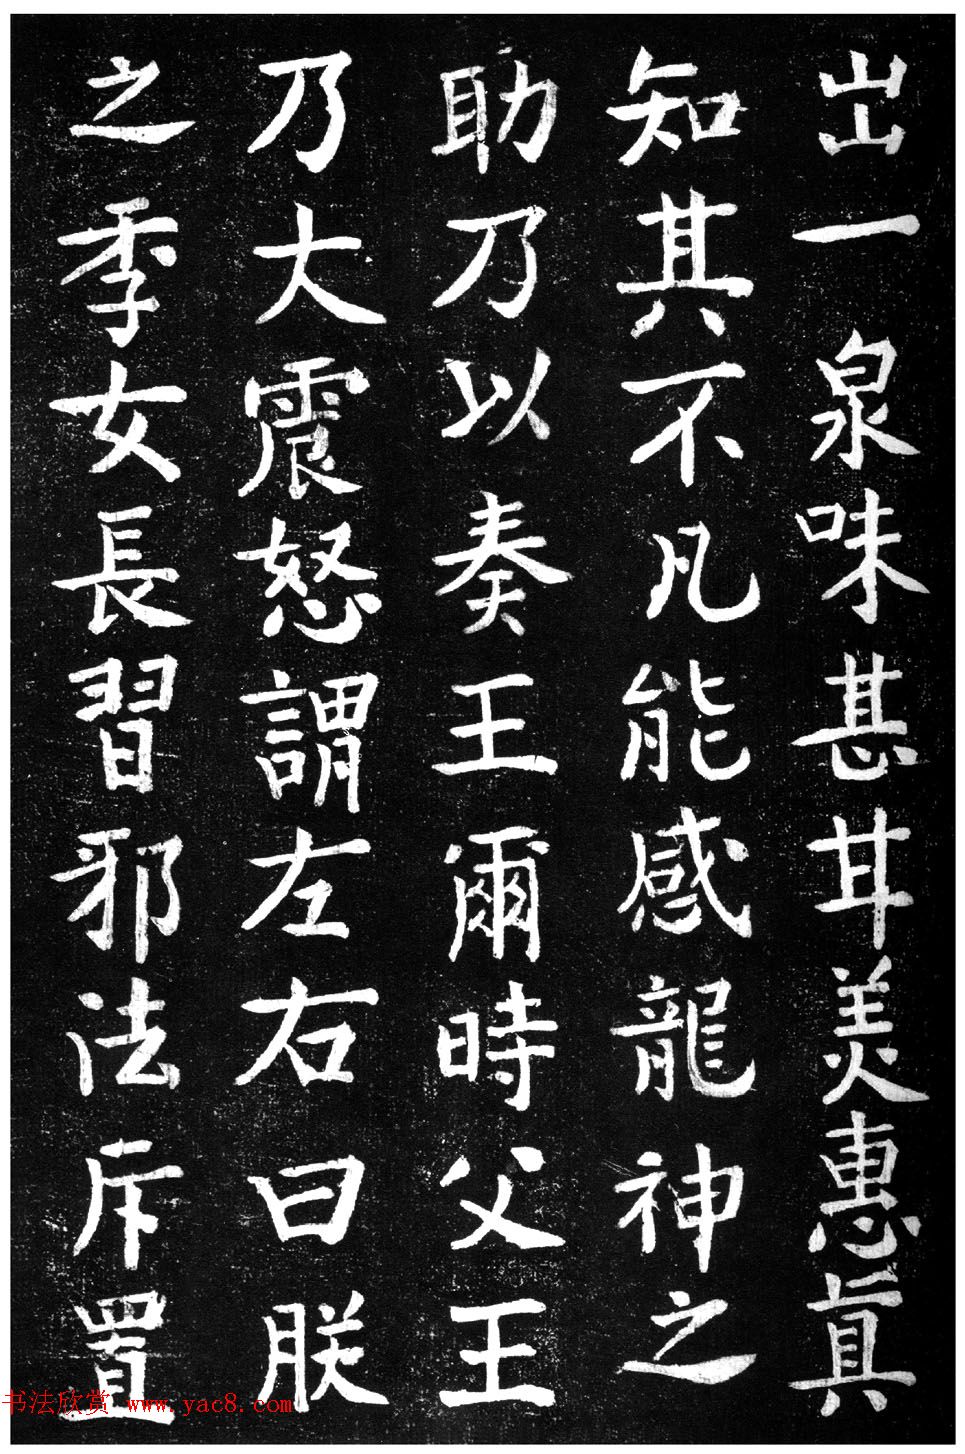 出一泉味甚甘美惠真
知其不凡能感龍神之
助乃以奏王爾時父王
乃大震怒謂左右曰朕
之季女長習邪法斥置
书法欣赏 www.yac8.com